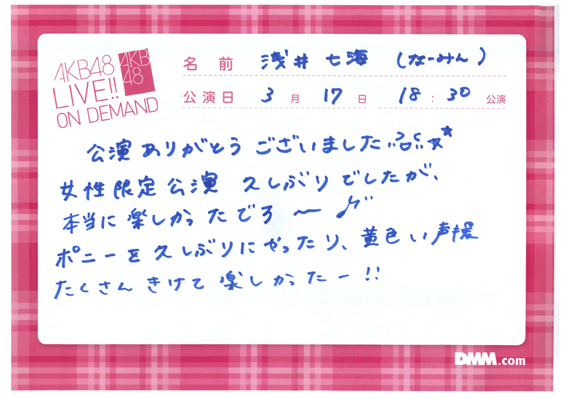 AKB48
LIVE!!
ON DEMAND
AKB
48
名前 浅井七海 (なーみん)
公演日 3月17日 18:30公演
公演ありがとうございました
女性限定公演 久しぶりでしたが、
本当に楽しかったでろ〜♪
ポニーを久しぶりにやったり、黄色い声援
たくさんきけて楽しかったー!!
DMM.com